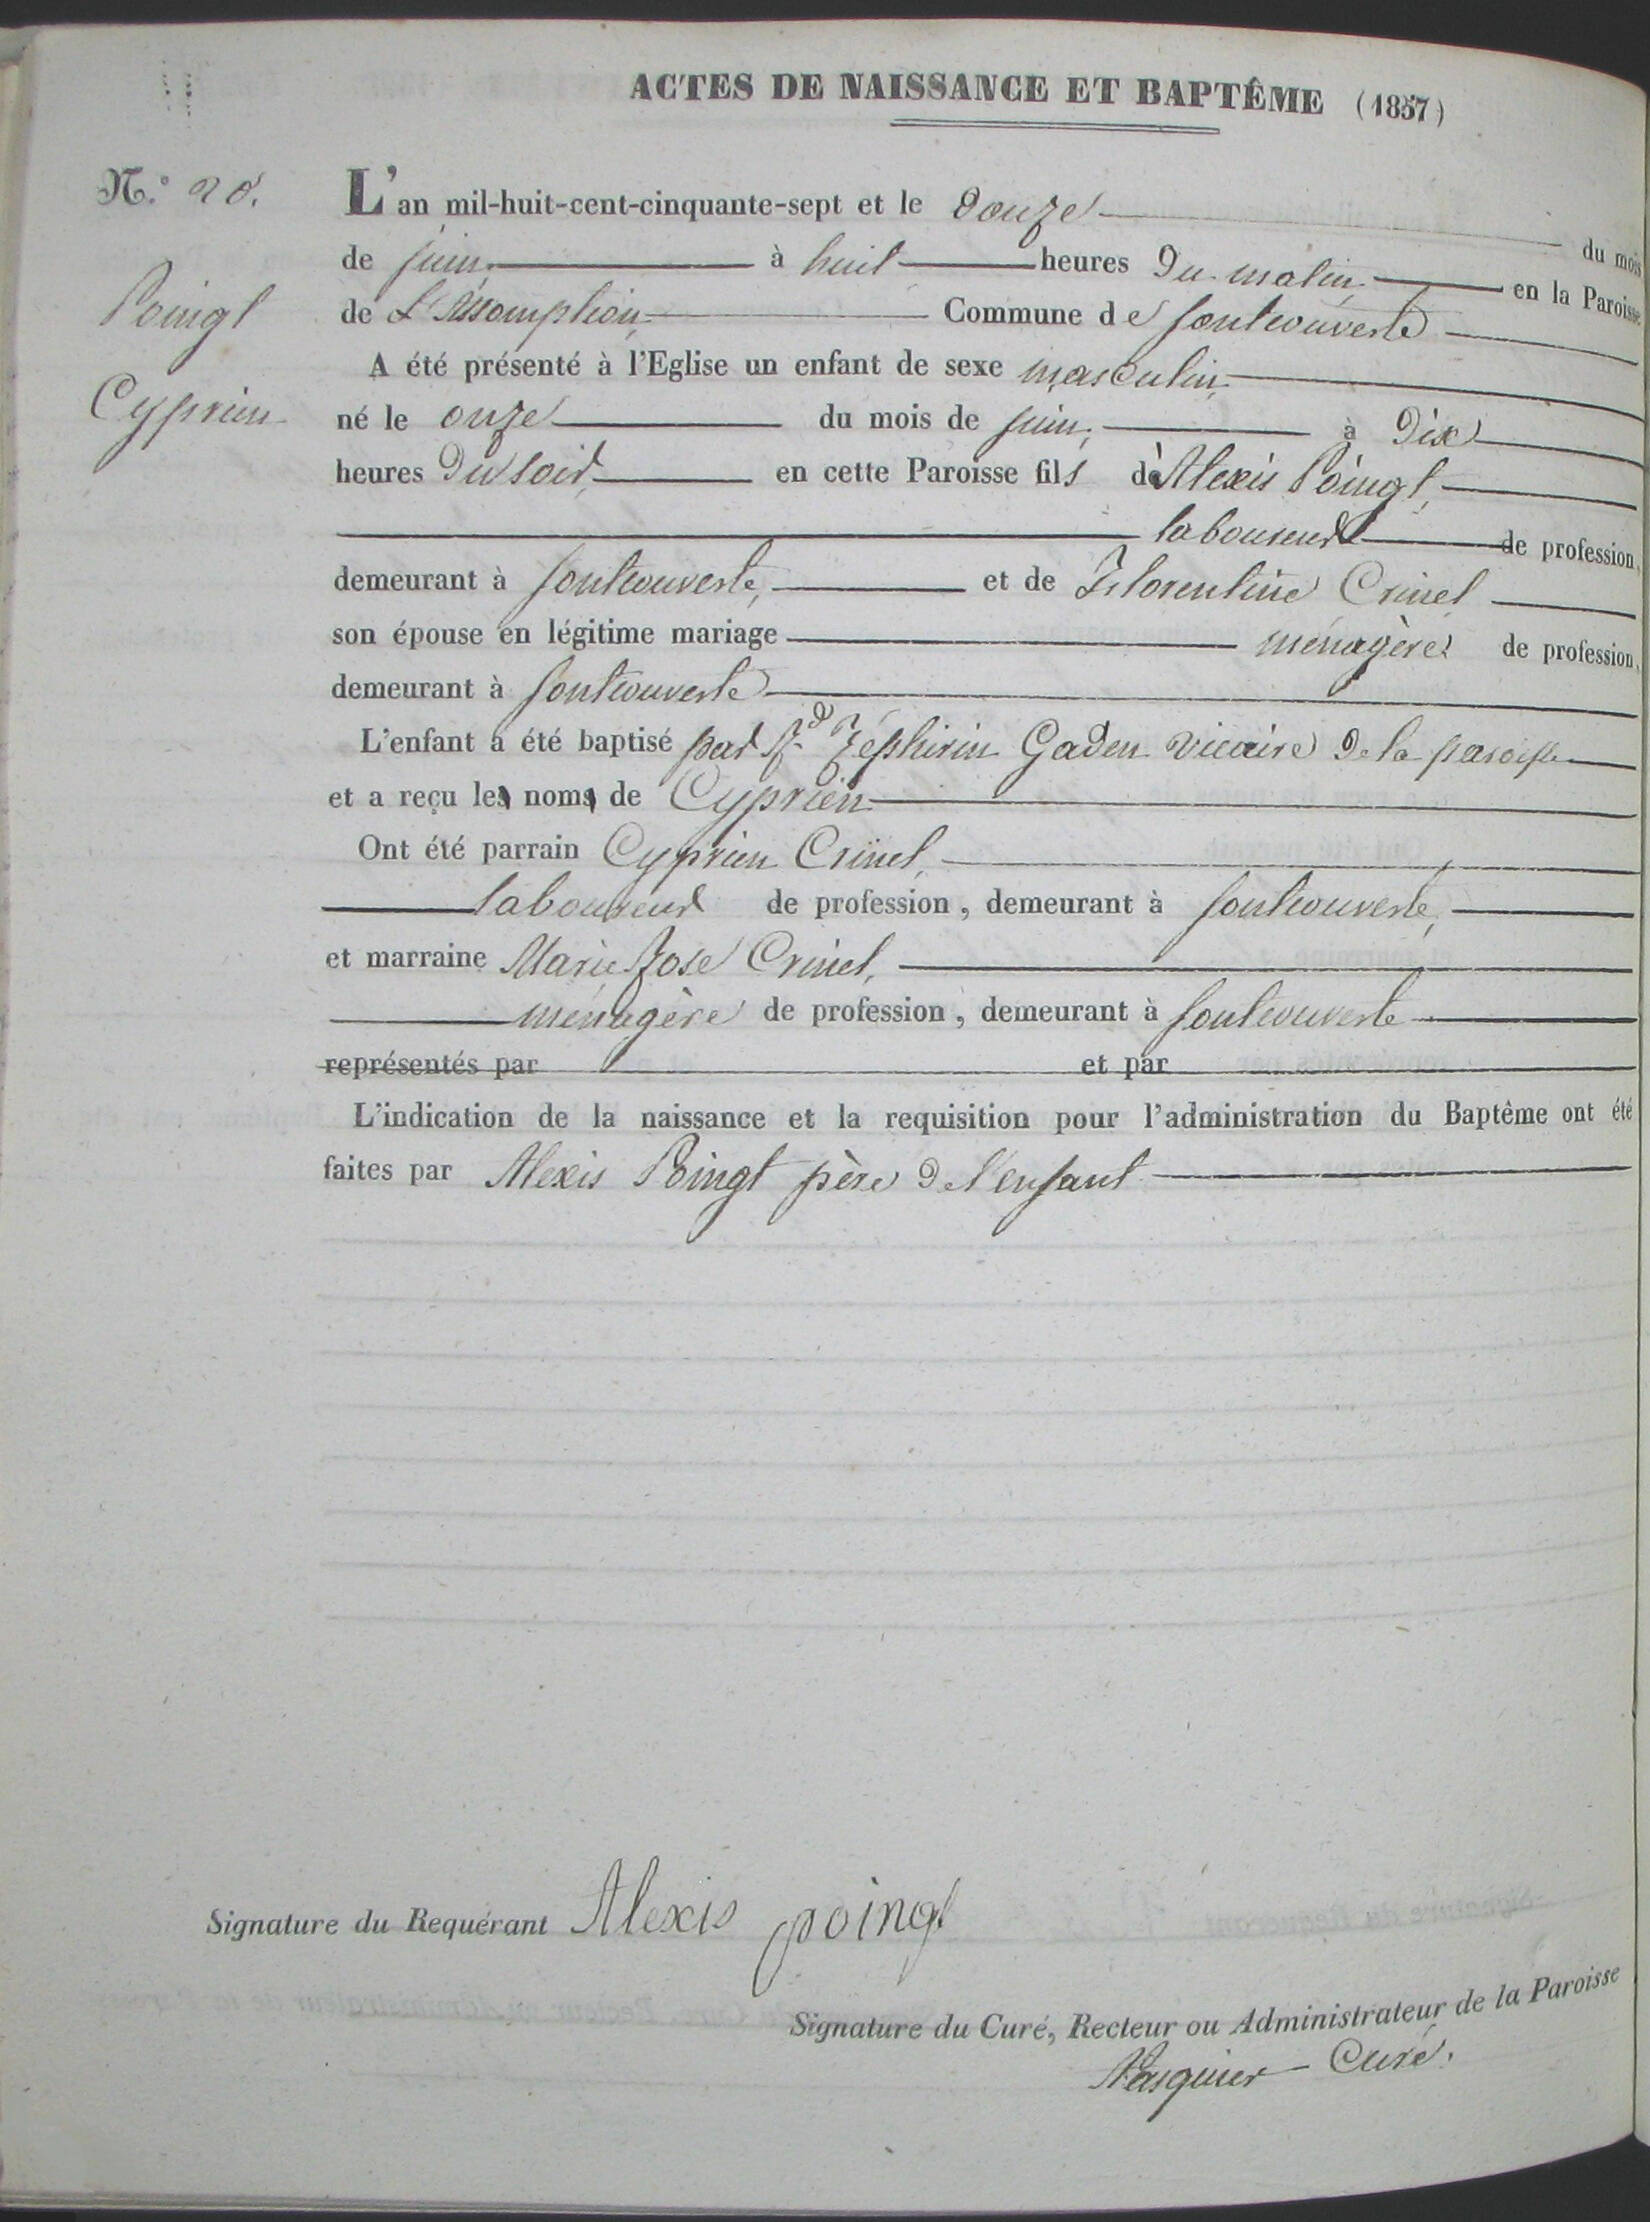 ACTES DE NAISSANCE ET BAPTÊME (1857)
N.° 28.
L'an mil-huit-cent-cinquante-sept et le douze du mois
de juin à huit heures du matin en la Paroisse
Poingt
de L'Assomption Commune de fontcouverte
A été présenté à l'Eglise un enfant de sexe masculin
Cyprien
né le onze du mois de juin, à dix
heures du soir en cette Paroisse fils de Alexis Poingt,
laboureur de profession,
demeurant à fontcouverte, et de Florentine Crinel
son épouse en légitime mariage ménagère de profession,
demeurant à fontcouverte
L'enfant a été baptisé par Rd Zéphirin Gaden vicaire de la paroisse
et a reçu le nom de Cyprien
Ont été parrain Cyprien Crinel,
laboureur de profession, demeurant à fontcouverte,
et marraine Marie Rose Crinel,
ménagère de profession, demeurant à fontcouverte
représentés par et par
L'indication de la naissance et la requisition pour l'administration du Baptême ont été
faites par Alexis Poingt père de l'enfant
Signature du Requérant Alexis poingt
Signature du Curé, Recteur ou Administrateur de la Paroisse
Curé.